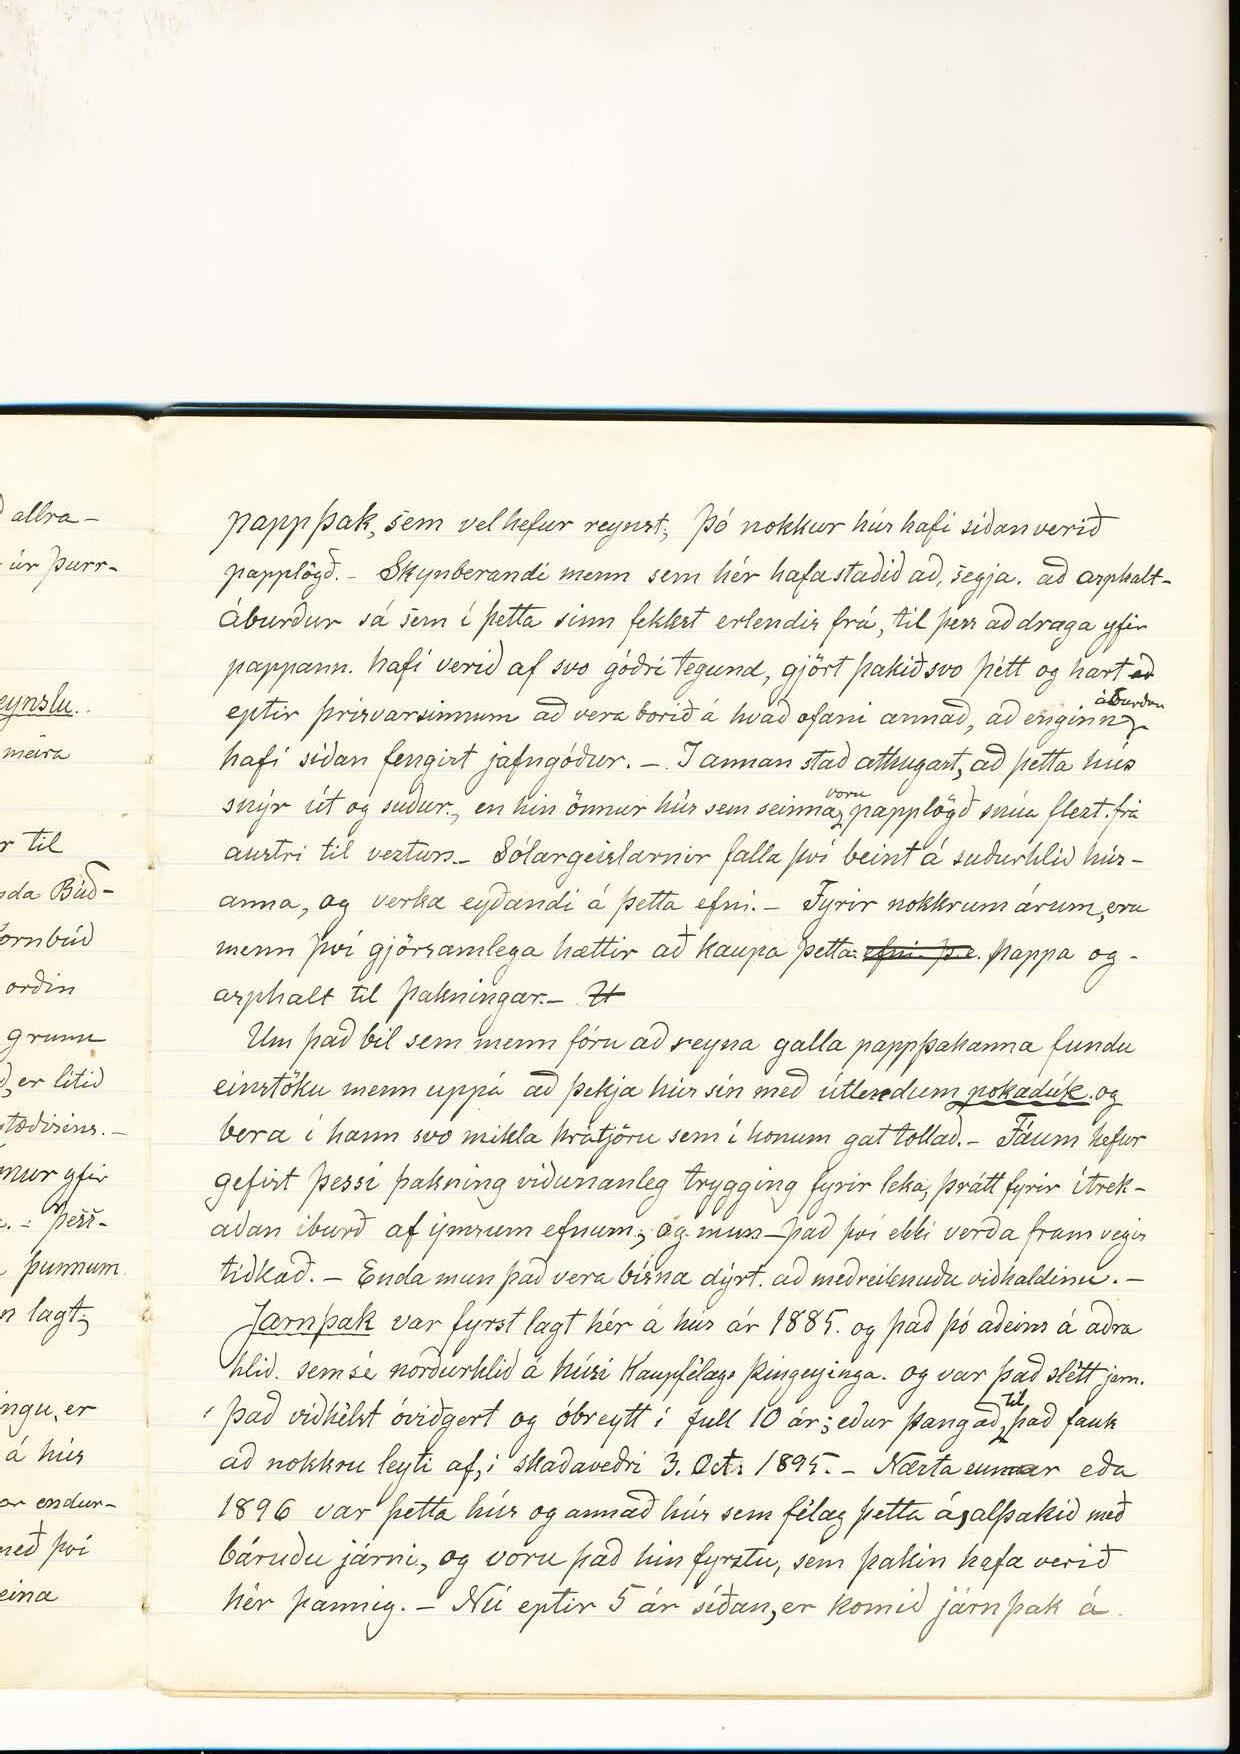 allra-
úr þurr-
eynslu.
meira
r til
nda Búð-
ornbúð
orðin
grunn
er lítið
stæðisins.-
mur yfir
þess-
þunnum
n lagt;
ingu, er
á hús
ar endur-
með því
eina
pappþak, sem vel hefur reynst; þó nokkur hús hafi síðan verið
papplögð. - Skynberandi menn sem hér hafa staðið að, segja. að asphalt-
áburður sá sem í þetta sinn fekkst erlendis frá, til þess að draga yfir
pappann. hafi verið af svo góðri tegund, gjört þakið svo þétt og hart að
eptir þrisvarsinnum að vera borið á hvað ofani annað, að enginn áburður
hafi síðan fengist jafngóður. - I annan stað athugast, að þetta hús
snýr út og suður., en hin önnur hús sem seinna voru papplögð snúa flest. frá
austri til vesturs.- Sólargeislarnir falla því beint á suðurhlið hús-
anna, og verka eyðandi á þetta efni. - Fyrir nokkrum árum, eru
menn því gjörsamlega hættir að kaupa þetta efni þ.e. pappa og -
asphalt til þakningar.- U
Um það bil sem menn fóru að reyna galla pappþakanna fundu
einstöku menn uppá að þekja hús sín með útlendum pokadúk. og
bera í hann svo mikla hrátjöru sem í honum gat tollað. - Fáum hefur
gefist þessi þakning viðunanleg trygging fyrir leka, þrátt fyrir ítrek-
aðan íburð af ýmsum efnum; og mun það því ekki verða fram vegis
tíðkað. - Enda mun það vera býsna dýrt. að meðreiknuðu viðhaldinu. -
Járnþak var fyrst lagt hér á hús ár 1885. og það þó aðeins á aðra
hlið. sem sé norðurhlið á húsi Kaupfélags Þingeyinga. og var það slétt járn.
Það viðhélst óviðgert og óbreytt í full 10 ár; eður þangað til það fauk
að nokkru leyti af, í skaðaveðri 3. Oct. 1895. - Næsta sumar eða
1896 var þetta hús og annað hús sem félag þetta á, alþakið með
báruðu járni, og voru það hin fyrstu, sem þakin hafa verið
hér þannig. - Nú eptir 5 ár síðan, er komið járnþak á